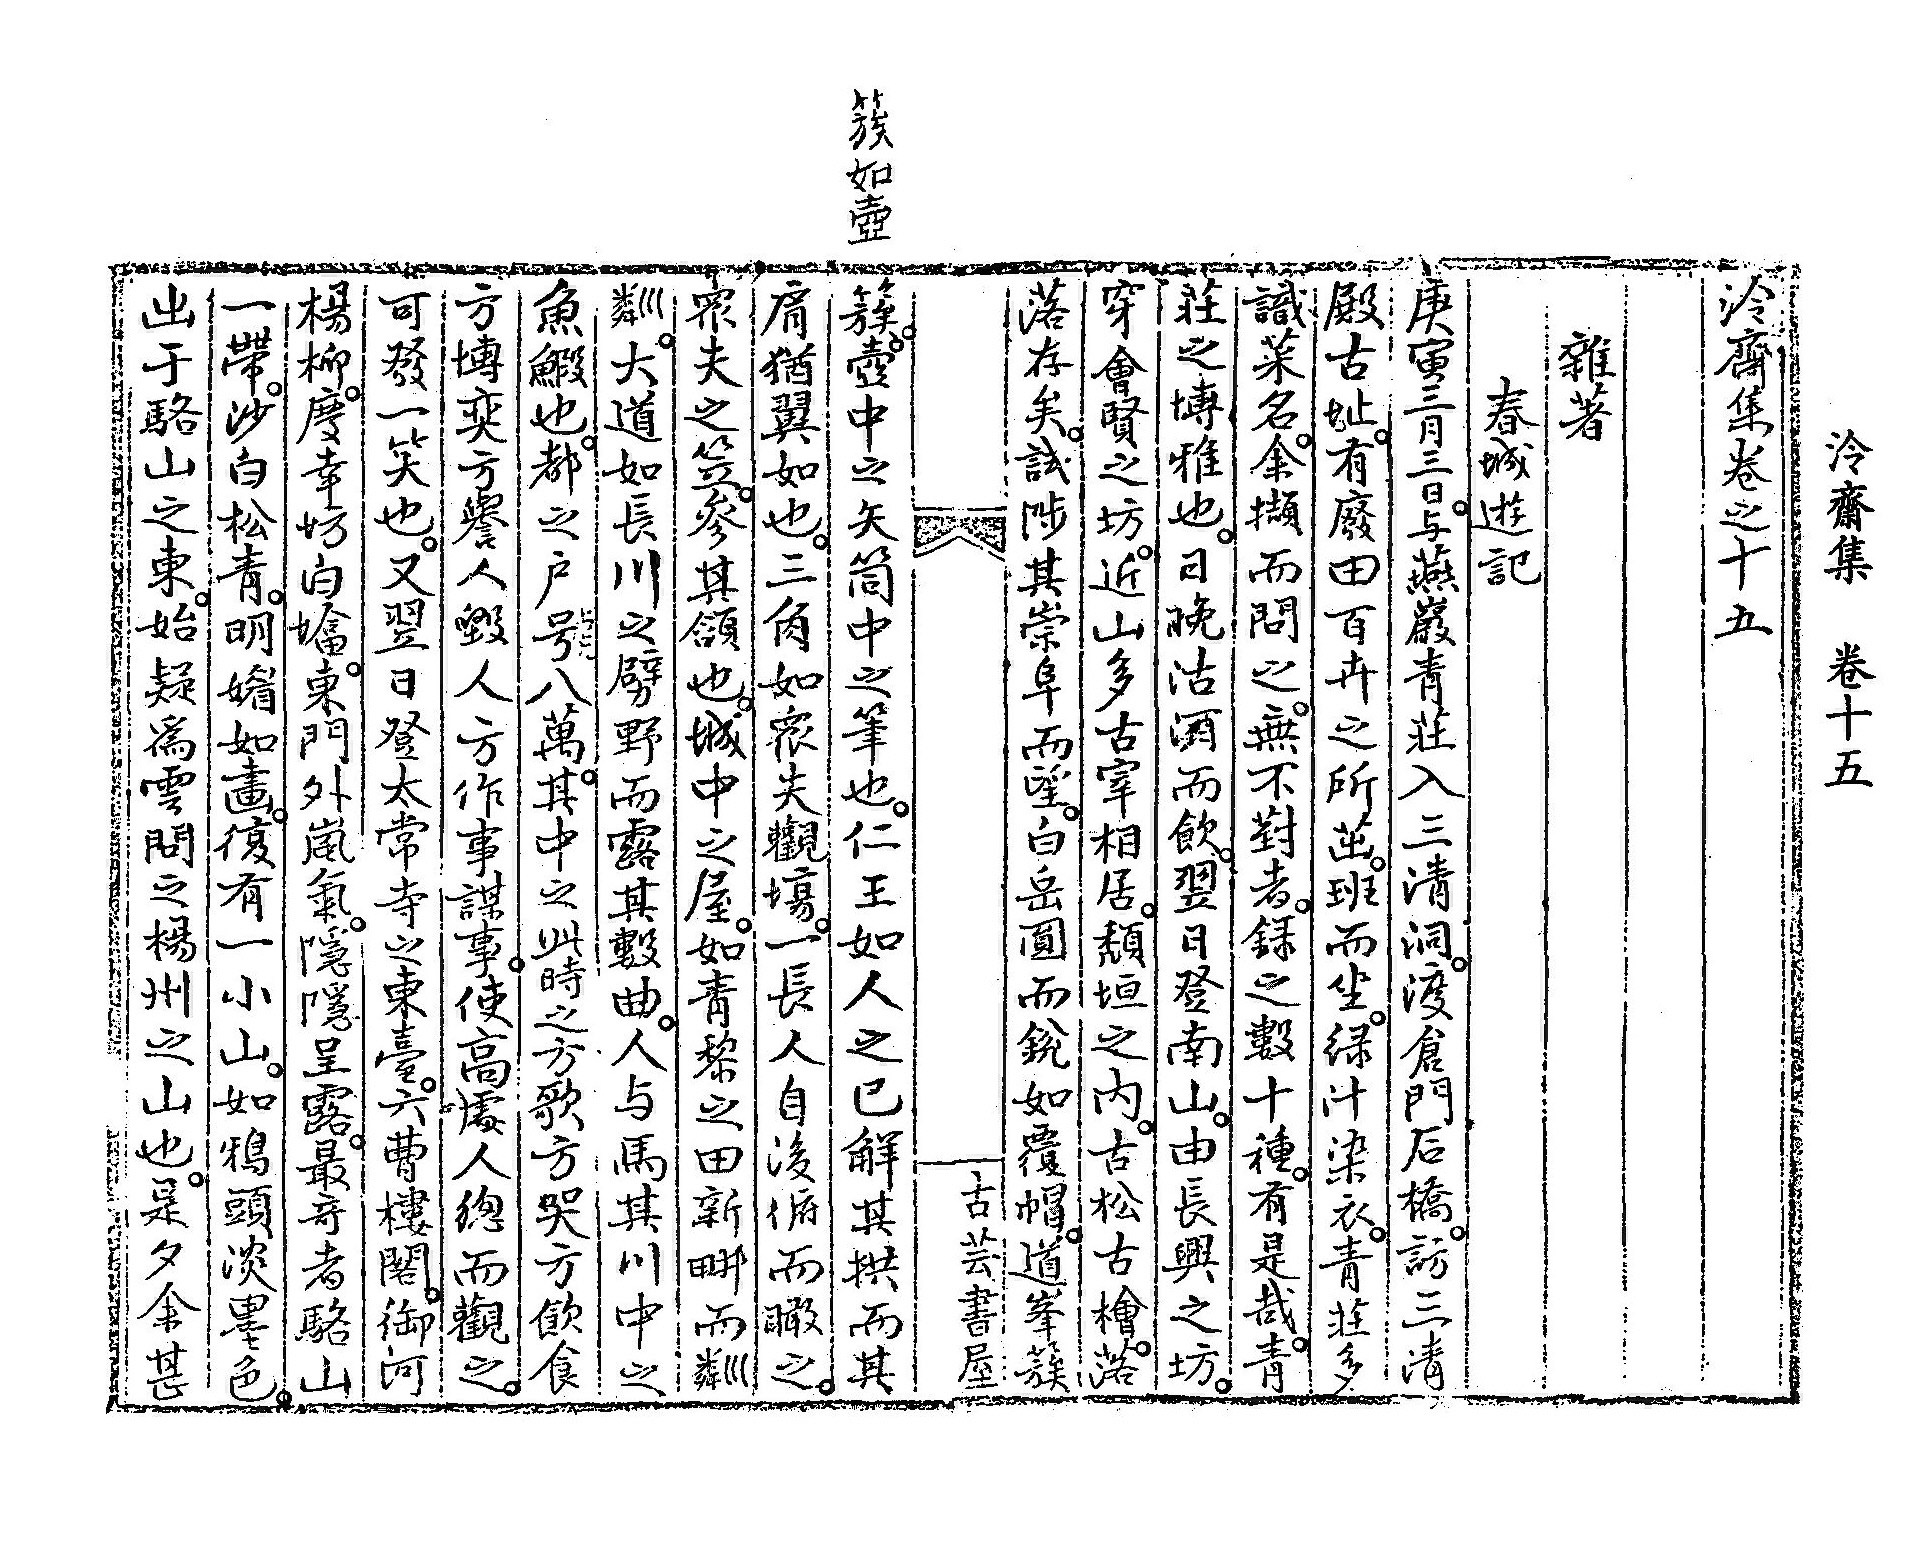 泠齋集 卷十五
泠齋集卷之十五
雜著
春城遊記
庚寅三月三日与燕巖青莊入三淸洞渡倉門石橋訪三淸
殿古址有廢田百卉之所茁班而坐緑汁染衣青莊多
識菜名余擷而問之無不對者録之數十種有是哉青
莊之博雅也日晚沽酒而飲翌日登南山由長興之坊
穿會賢之坊近山多古宰相居頹垣之內古松古檜落
落存矣試陟其崇阜而望白岳圓而銳如覆帽道峯簇
古芸書屋
簇如壺
簇壺中之矢筒中之筆也仁王如人之已解其拱而其
肩猶翼如也三角如衆夫觀塲一長人自後俯而瞰之
衆夫之笠參其頷也城中之屋如青黎之田新畊而粼
粼大道如長川之劈野而露其數曲人与馬其川中之
魚鰕也都之戶号八萬其中之此時之方歌方哭方飲食
方博奕方譽人毀人方作事謀事使高處人總而觀之
可發一笑也又翌日登太常寺之東臺六曹樓閣御河
楊柳慶幸坊白塔東門外嵐氣隱隱呈露最奇者駱山
一帶沙白松青明媚如畫復有一小山如鴉頭淡墨色
出于駱山之東始疑爲雲問之楊州之山也是夕余甚